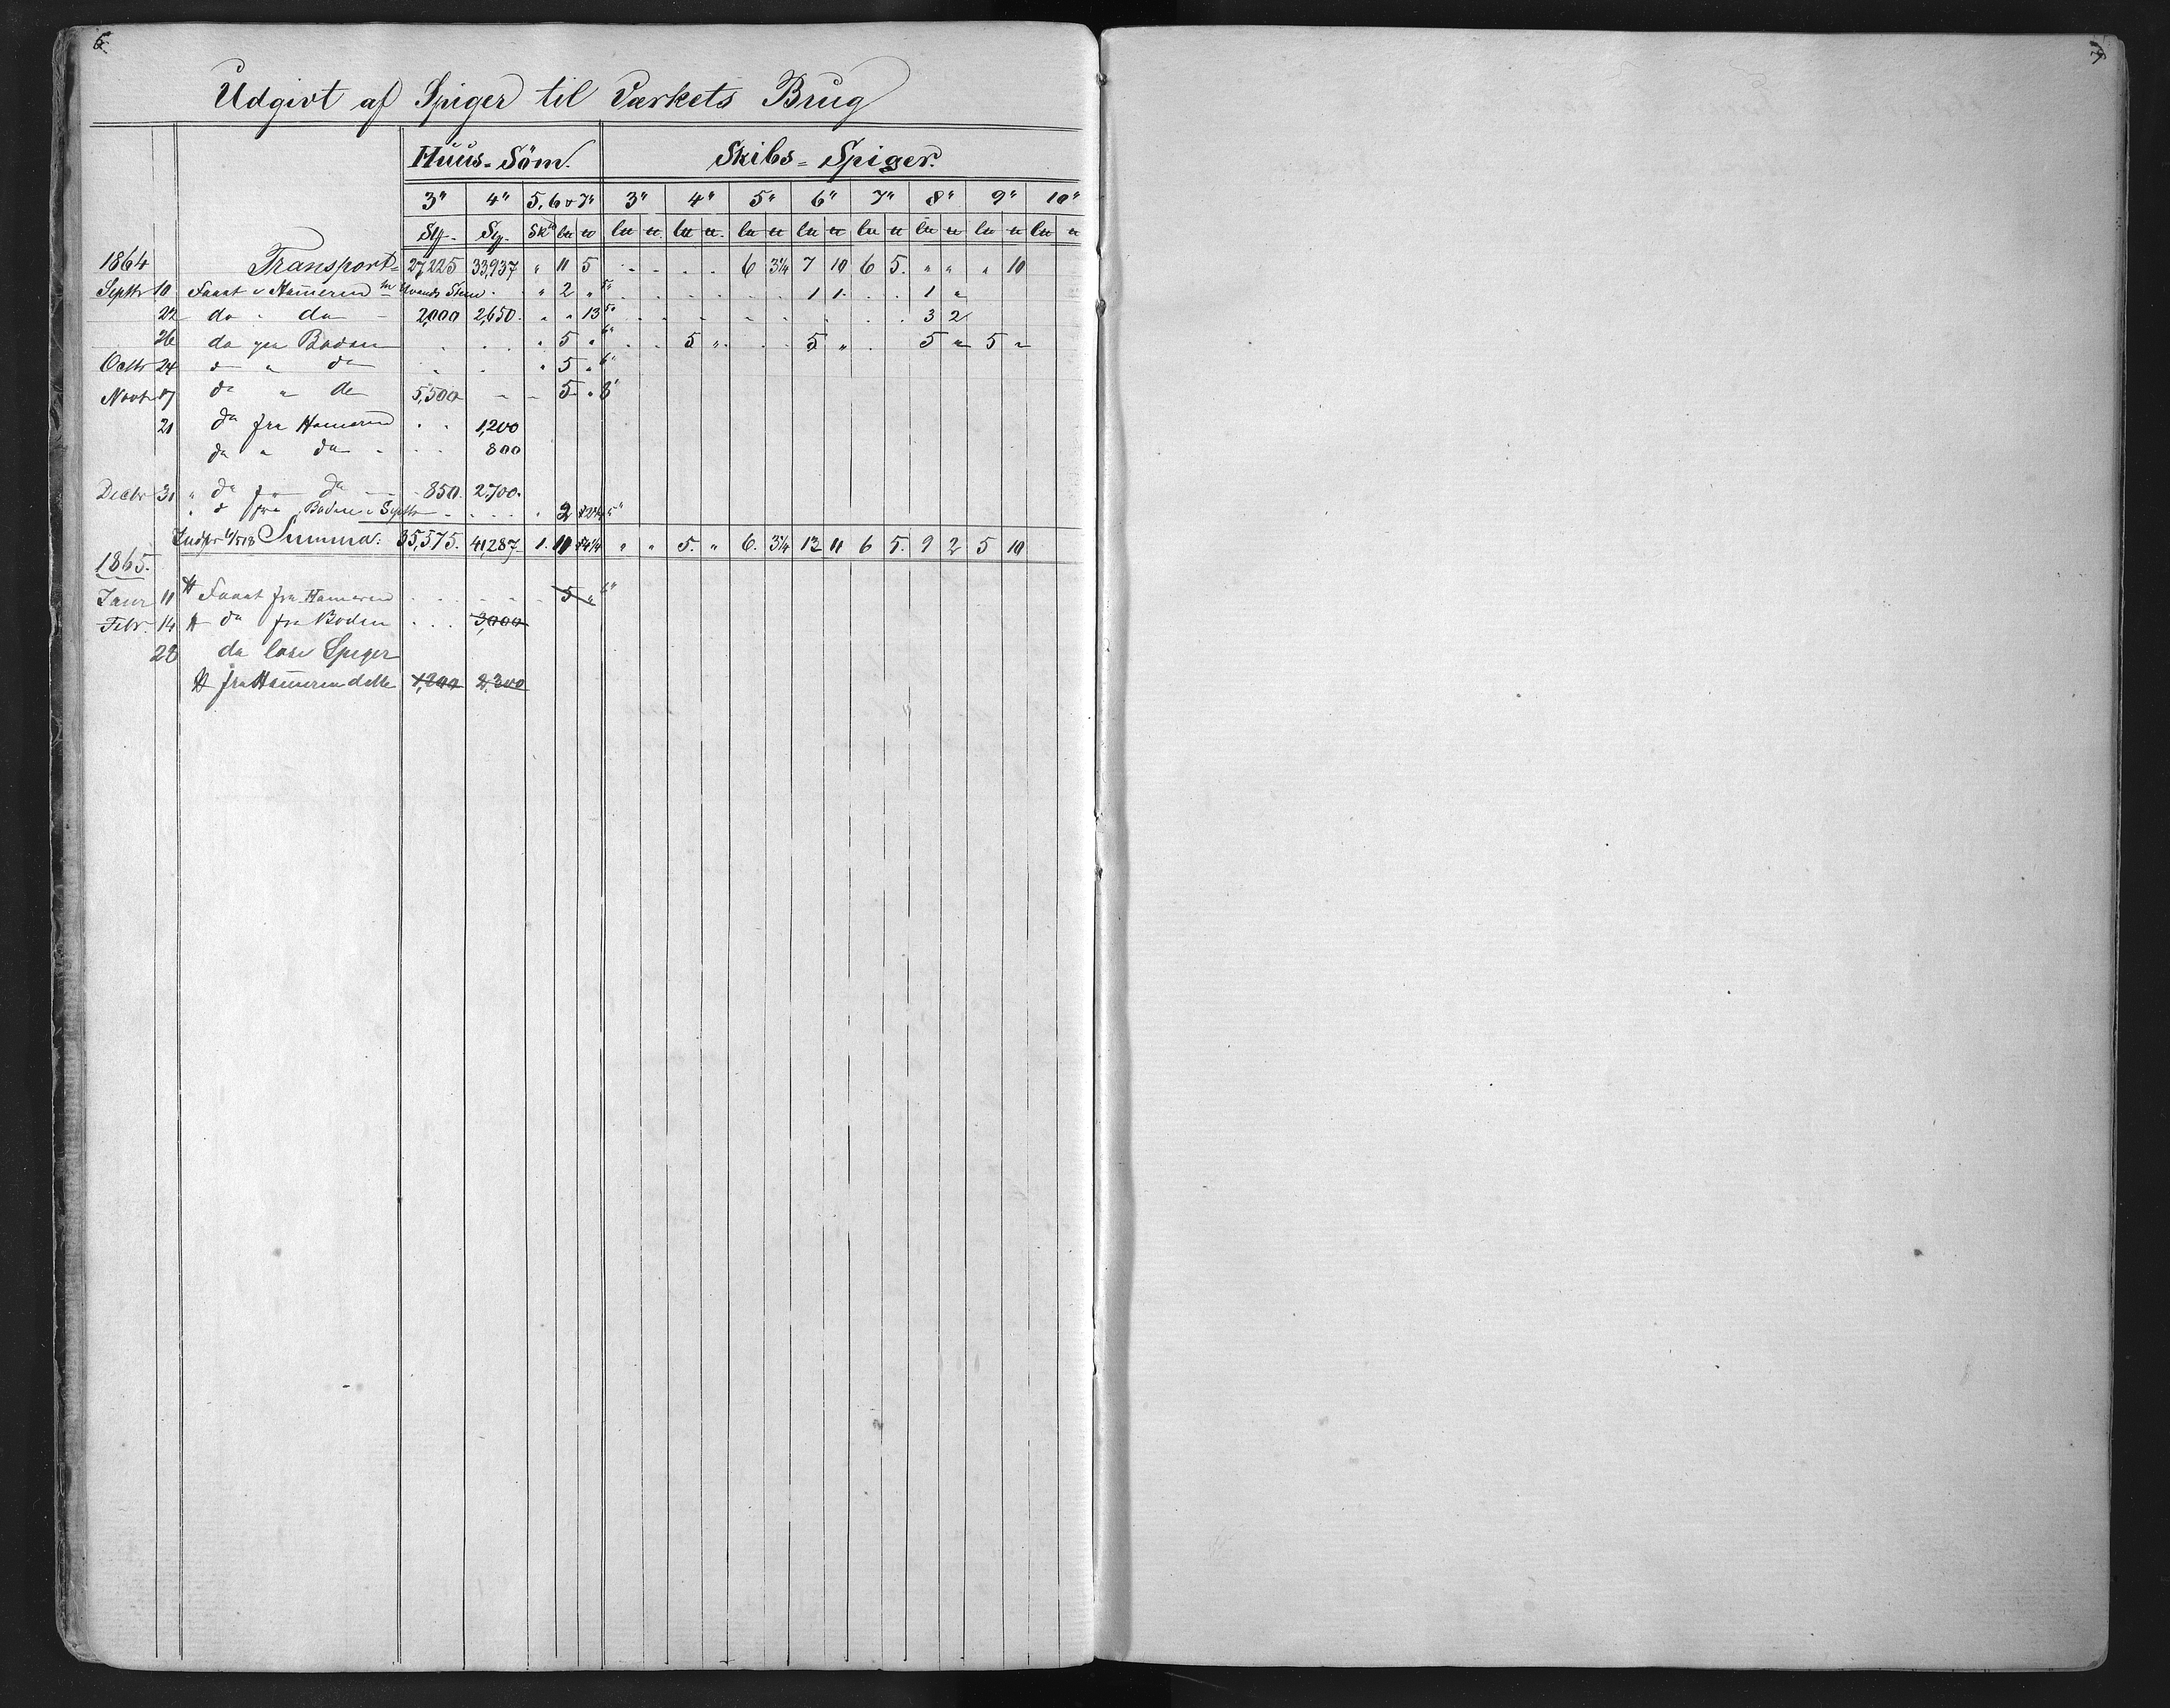 6
Udgivt af Spiger til Værkets Brug
Huus-Söm. Skibs-Spiger.
3" 4" 5, 6 & 7" 3" 4" 5" 6" 7" 8" 9" 10"
1864 Transport 27,225 33,937 " 11 5 6 3¼ 7 10 6 5. " " " 10
Septbr 10 Faaet Hameren " 2 " 5" 1 1 1 "
22 do " do 2,000 2,650. " " 13 5" 3 2
26 do fra Boden " 5 " 6" 5 " 5 " 5 " 5 "
Octbr 24 do " do " 5 " 6"
Novbr 17 do " do 5,500 5 "
21 do fra Hameren 1,200
do " do 800
Decbr 31 " do fra do 850. 2,700.
" d fra Boden i Septbr 2 5"
Summa: 35,575. 41,287 1. 11 " " 5. " 6. 3¼ 12 11 6 5. 9 2 5 10
1865.
Janr 11 Faaet fra Hameren 5 " 6"
Febr. 14 do fra Boden 3,000
28 do löse Spiger
fra Hameren dette 1,200 2,300
7